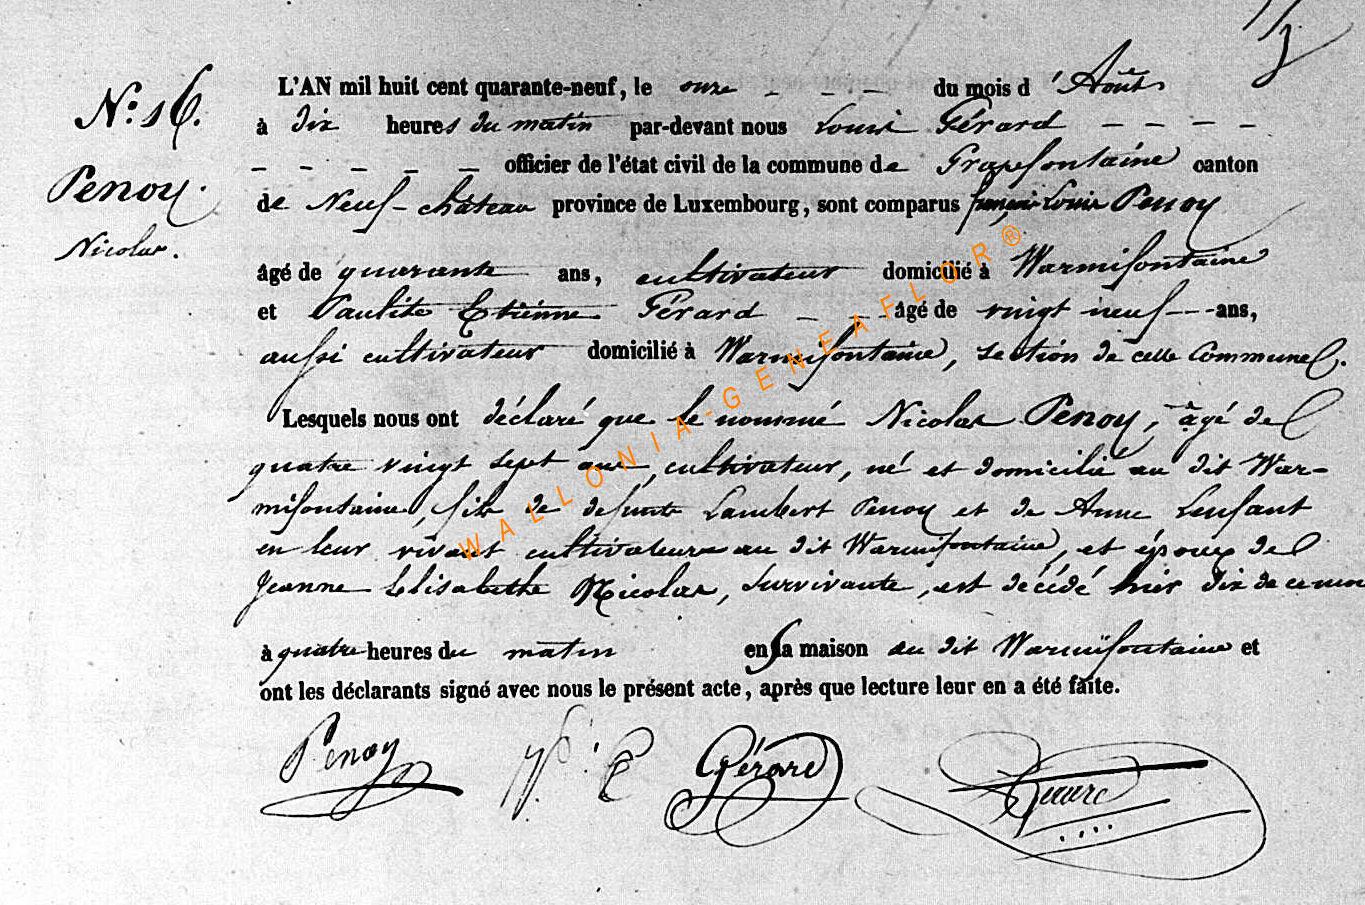 N.° 16.
Penoy.
Nicolas.
L'AN mil huit cent quarante-neuf, le onze - - - du mois d'Août
à dix heures du matin par-devant nous Louis Gérard - - - -
- - - - - officier de l'état civil de la commune de Grapfontaine canton
de Neuf-château province de Luxembourg, sont comparus françois Louis Penoy
âgé de quarante ans, cultivateur domicilié à Warmifontaine
et Paulite Etienne Gérard - - - âgé de vingt neuf - - - ans,
aussi cultivateur domicilié à Warmifontaine, section de celle Commune.
Lesquels nous ont déclaré que le nommé Nicolas Penoy, âgé de
quatre vingt sept ans, cultivateur, né et domicilié au dit War-
mifontaine, fils de defunts Lambert Penoy et de Anne Lenfant
en leur vivant cultivateurs au dit Warmifontaine, et époux de
Jeanne Elisabethe Nicolas, survivante, est décédé hier dix de ce mois
à quatre heures du matin en sa maison au dit Warmifontaine et
ont les déclarants signé avec nous le présent acte, après que lecture leur en a été faite.
Penoy P. E Gérard
WALLONIA-GENEAFLOR®